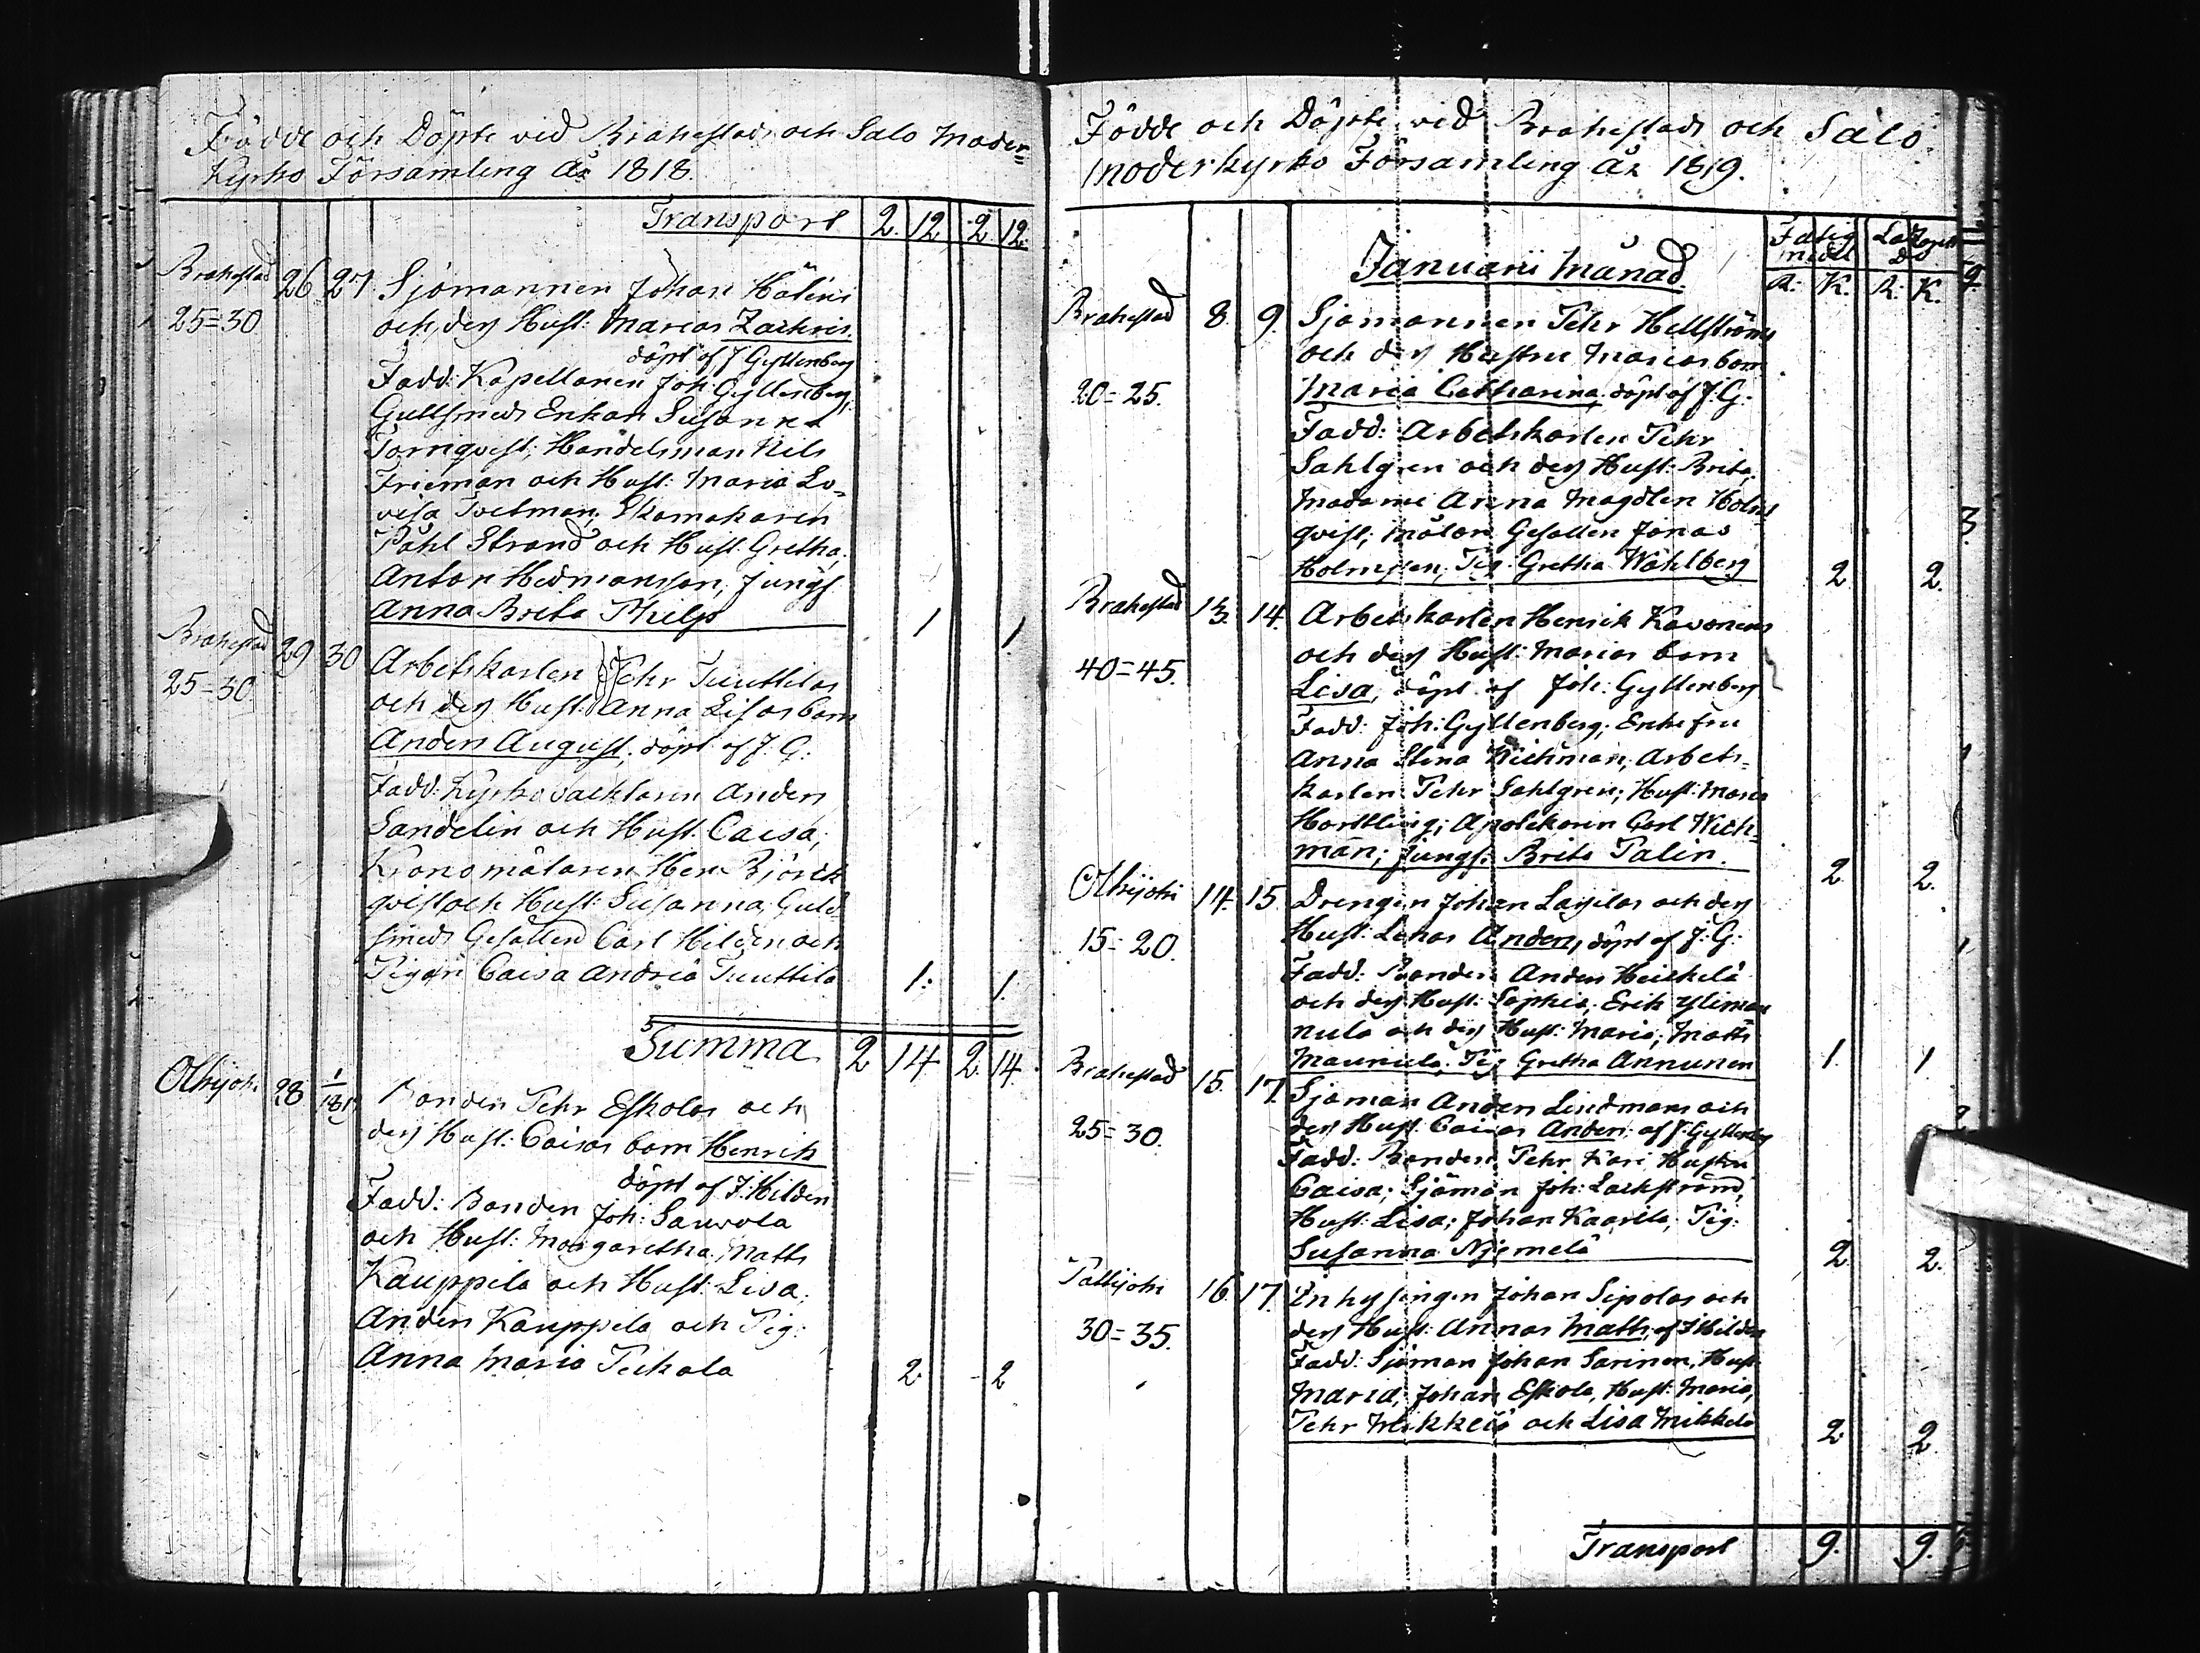 Födde och Döpte vid Brahestads och Salo Moder=
kyrko Församling År 1818.
Transport 2. 12 2 12.
Brahestad 26 27 Sjömannen Johan Hälins
25=30 och des Hust: Marias Zachris.
döpt af J Gyllenberg
Fadd: Kapellanen Joh: Gyllenberg,
Gullsmeds Enkan Susanna
Törnqvist; Handelsman Nils
Frieman och Hust: Maria Lo=
visa Tvetman; Skomakaren
Påhl Strand och Hust: Gretha;
Anton Hedmansson, Jungf.
Anna Brita Thelps 1 1.
Brahestad 29 30 Arbetskarlen Pehr Tuuttilas
25=30 och des Hust: Anna Lisas barn
Anders August; döpt af J. G.
Fadd: Kyrkovacktaren Anders
Sandelin och Hust. Caisa;
Kronomälaren Hen: Björck
qvist och Hust: Susanna, Guld
smeds Gesällen Carl Hilden och
Pigan Caisa Andrea Tuuttila 1. 1.
Summa 2 14 2. 14.
Olkijoki 28 1/1819 Bonden Pehr Eskolas och
des Hust: Caisas barn Henrik
döpt af J: Hilden
Fadd: Bonden Joh: Sauvola
och Hust: Margaretha, Matts
Kauppila och Hust: Lisa;
Anders Kauppila och Pig:
Anna Maria Peckala 2 2
Födde och Döpte vid Brahestads och Salo
Moderkyrko Församling År 1819.
Januarii Månad.
Fattig medl Lazarett do
R: K. R: K.
Brahestad 8. 9. Sjömannen Pehr Hellströms
och des Hustru Marias barn
20=25. Maria Catharina, döpt af J. G.
Fadd: Arbetskarlen Pehr
Sahlgren och des Hust: Brita,
Madame Anna Magdlen Holm
qvist; Målare Gesällen Jonas
Holmsten; Pig: Gretha Wåhlberg 2 2.
Brahestad 13. 14. Arbetskarlen Henrik Kavonens
och des Hust: Marias barn
40=45. Lisa, döpt af Joh: Gyllenberg
Fadd: Joh: Gyllenberg; Enkefru
Anna Stina Wichman; Arbets=
karlen Pehr Sahlgren; Hust: Maria
Hartling; Apotekaren Carl Wich=
man; Jungf: Brita Palin. 2. 2.
Olkijoki 14. 15. Drengen Johan Lassilas och des
15=20. Hust: Lenas Anders, döpt af J: G:
Fadd: Bonden Anders Heickelä
och des Hust: Sophia; Erik Yliman
nula och des Hust: Maria; Matts
Maunula, Pig Gretha Annunen 1. 1
Brahestad 15. 17. Sjöman Anders Lindmans och
25=30. des Hust: Caisas Anders; af J. Gyllenbg
Fadd: Bonden Pehr Kari Hustru
Caisa; Sjöman Joh: Lackström,
Hust: Lisa; Johan Kaarila, Pig:
Susanna Njemelä 2. 2.
Pattijoki 16. 17. Inhysingen Johan Sipolas och
30=35. des Hust: Annas Matts, af J Hilden
Fadd: Sjöman Johan Sarinen, Hust
Maria; Johan Eskola, Hust: Maria,
Pehr Mikkelä och Lisa Mikkelä 2. 2.
Transport 9. 9.